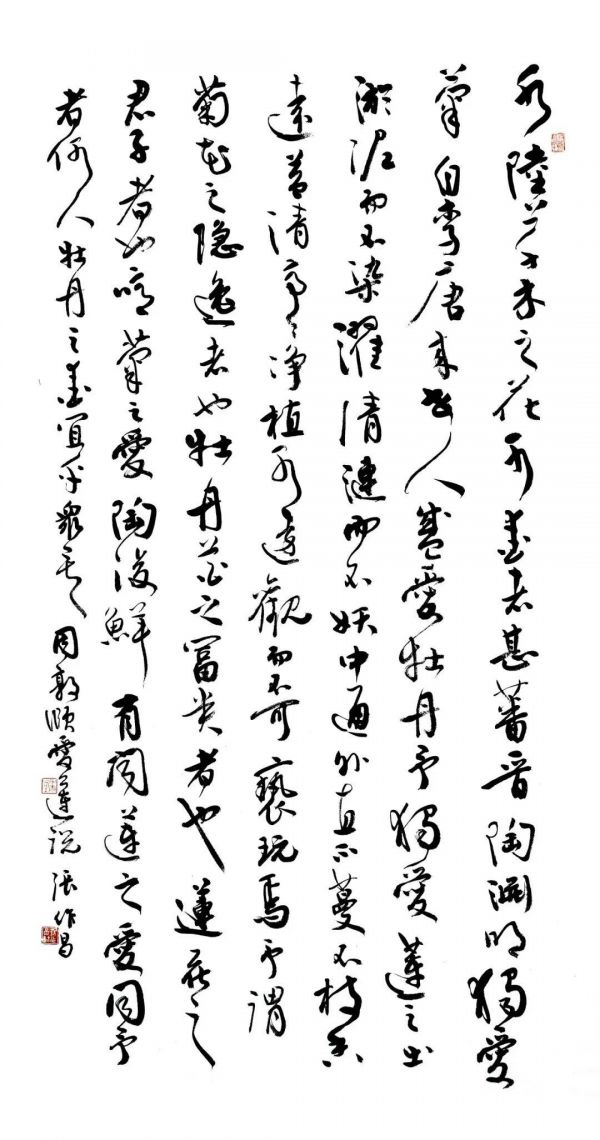 水陸草木之花可愛者甚蕃晋陶渊明獨愛
菊自李唐来世人盛愛牡丹予獨愛蓮之出
淤泥而不染濯清漣而不妖中通外直不蔓不枝香
遠益清亭〻净植可遠觀而不可褻玩焉予謂
菊花之隐逸者也牡丹花之富贵者也蓮花之
君子者也噫菊之愛陶後鮮有闻蓮之愛同予
者何人牡丹之愛宜乎衆矣 周敦颐愛蓮说 张作昌